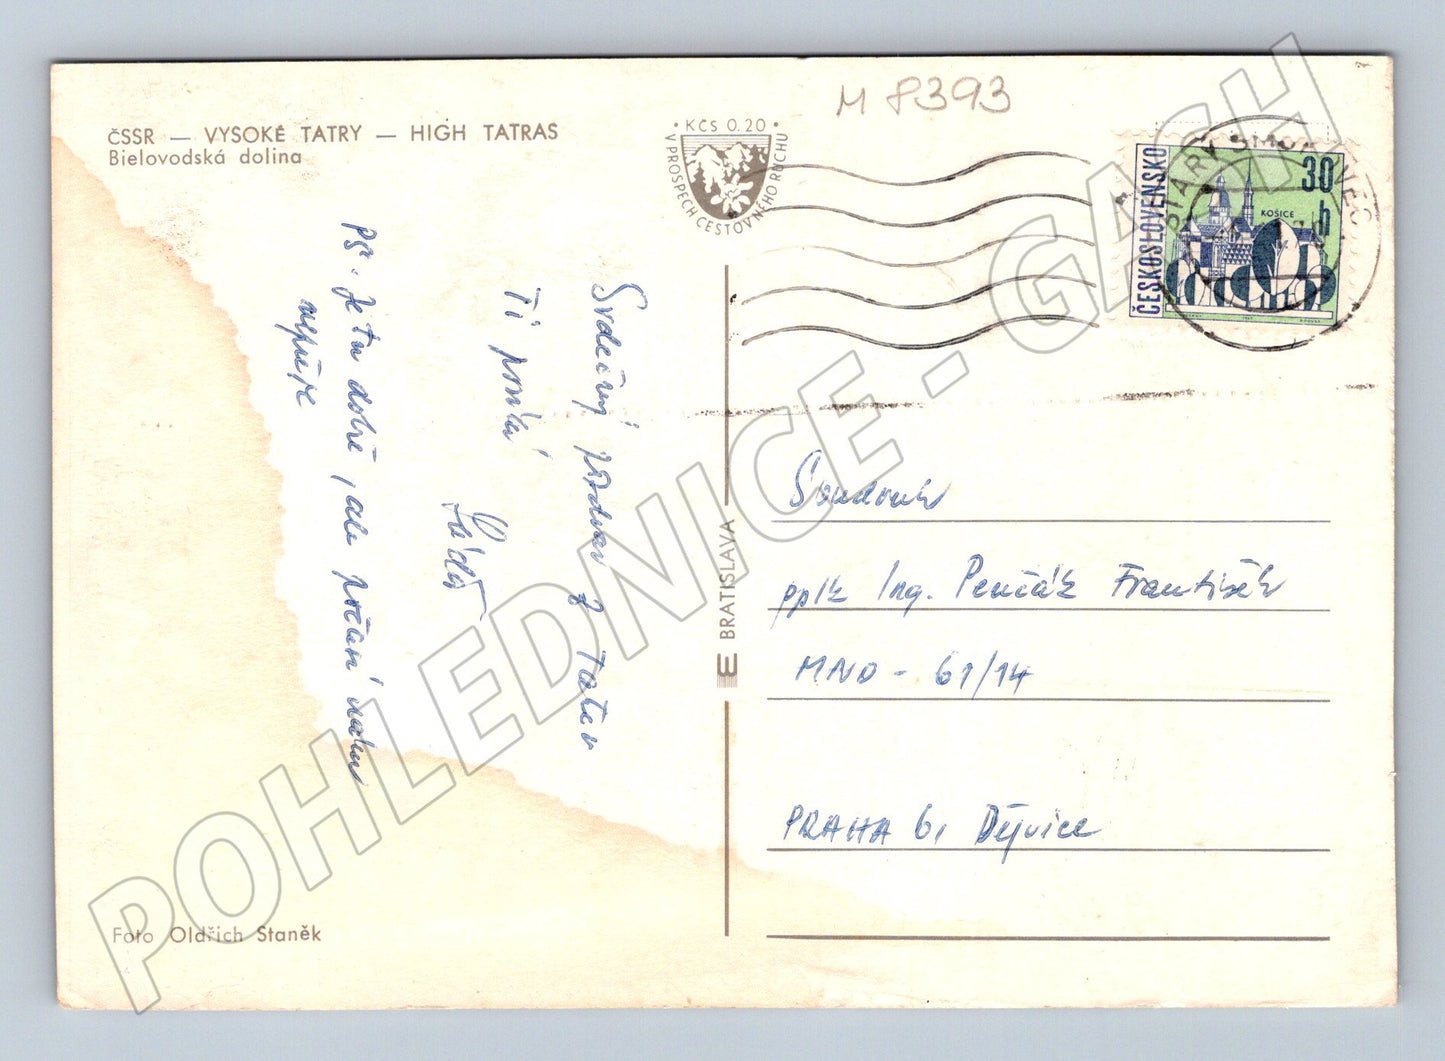 M 8393
ČSSR — VYSOKÉ TATRY — HIGH TATRAS
Bielovodská dolina
• KČS 0.20 •
V PROSPECH CESTOVNÉHO RUCHU
STARÝ SMOKOVEC
ČESKOSLOVENSKO
30 h
KOŠICE
Srdečný pozdrav z Tater
Ti posílá
Láďa
PS. Je tu dobře, ale počasí
BRATISLAVA
Soudruh
pplk Ing. Penčák František
MNO - 61/14
PRAHA 6, Dejvice
Foto Oldřich Staněk
POHLEDNICE - GASH